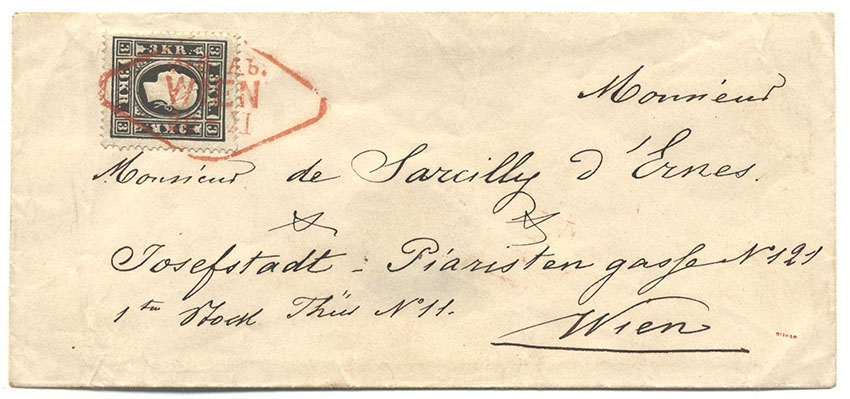 3 KR. 3
3 KR.
3 KR.
WIEN
Monsieur
Monsieur de Sarcilly d'Ernes.
Josefstadt - Piaristengasse N 121
1ten Stock Thür N 11.
Wien